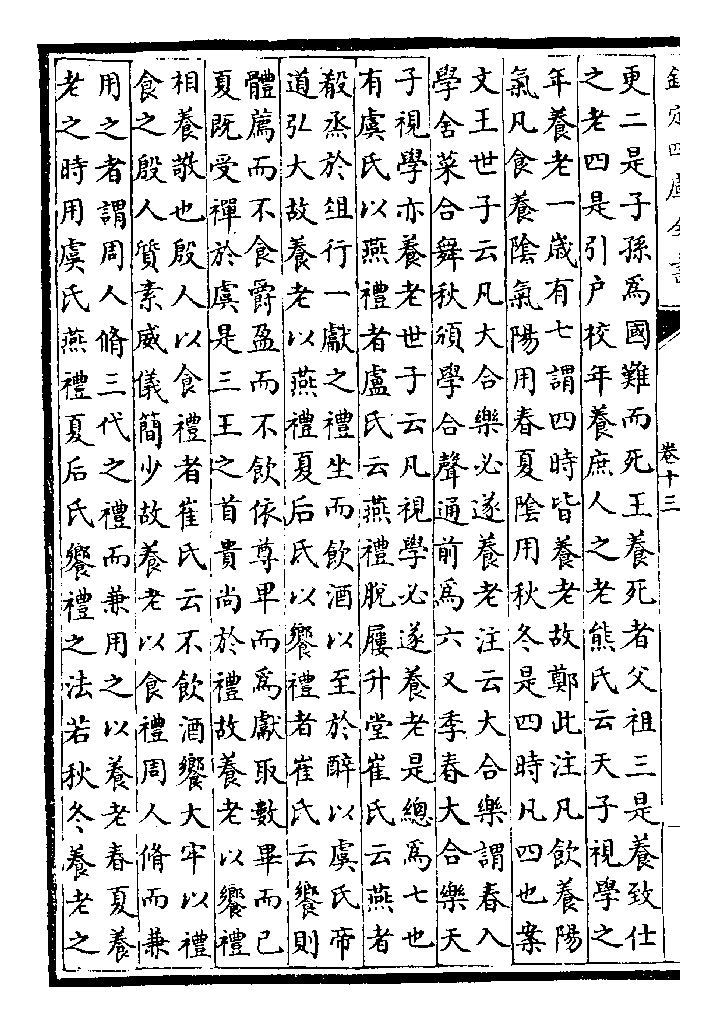 欽定四庫全書
卷十三
更二是子孫為國難而死王養死者父祖三是養致仕
之老四是引户校年養庶人之老熊氏云天子視學之
年養老一歳有七謂四時皆養老故鄭此注凡飲養陽
氣凡食養隂氣陽用春夏隂用秋冬是四時凡四也案
文王世子云凡大合樂必遂養老注云大合樂謂春入
學舍菜合舞秋頒學合聲通前為六又季春大合樂天
子視學亦養老世子云凡視學必遂養老是總為七也
有虞氏以燕禮者盧氏云燕禮脱屨升堂崔氏云燕者
殽烝於俎行一獻之禮坐而飲酒以至於醉以虞氏帝
道弘大故養老以燕禮夏后氏以饗禮者崔氏云饗則
體薦而不食爵盈而不飲依尊卑而為獻取數畢而已
夏既受禪於虞是三王之首貴尚於禮故養老以饗禮
相養敬也殷人以食禮者崔氏云不飲酒饗大牢以禮
食之殷人質素威儀簡少故養老以食禮周人脩而兼
用之者謂周人脩三代之禮而兼用之以養老春夏養
老之時用虞氏燕禮夏后氏饗禮之法若秋冬養老之